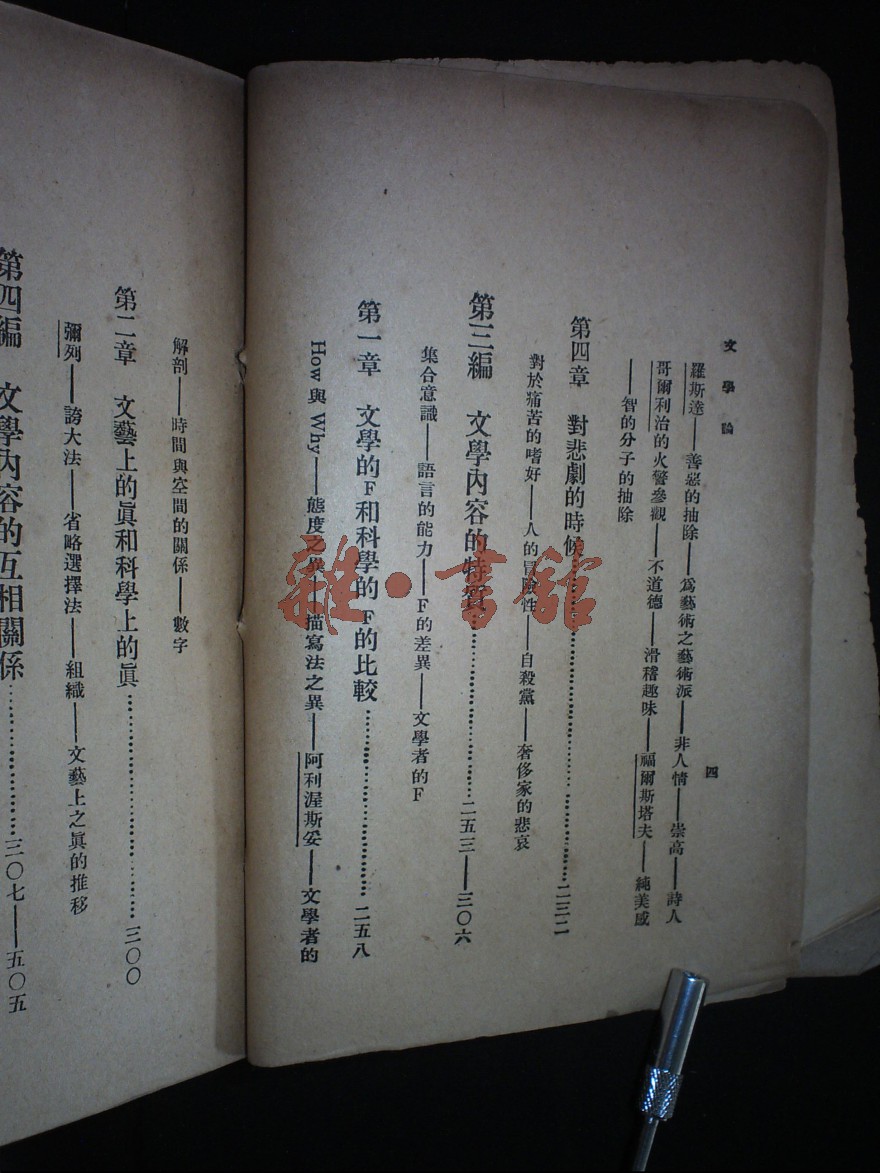 文學論
四
羅斯達——善惡的抽除——爲藝術之藝術派——非人情——崇高——詩人
哥爾利治的火警參觀——不道德——滑稽趣味——福爾斯塔夫——純美感
——智的分子的抽除
第四章　對悲劇的時候……………………二三二
對於痛苦的嗜好——人的冒險性——自殺黨——奢侈家的悲哀
第三編　文學內容的特質……………………二五三——三〇六
集合意識——語言的能力——F的差異——文學者的F
第一章　文學的F和科學的F的比較……………………二五八
How與Why——態度之異——描寫法之異——阿利渥斯妥——文學者的
解剖——時間與空間的關係——數字
第二章　文藝上的眞和科學上的眞……………………三〇〇
彌列——誇大法——省略選擇法——組織——文藝上之眞的推移
第四編　文學內容的互相關係……………………三〇七——五〇五
雜·書館